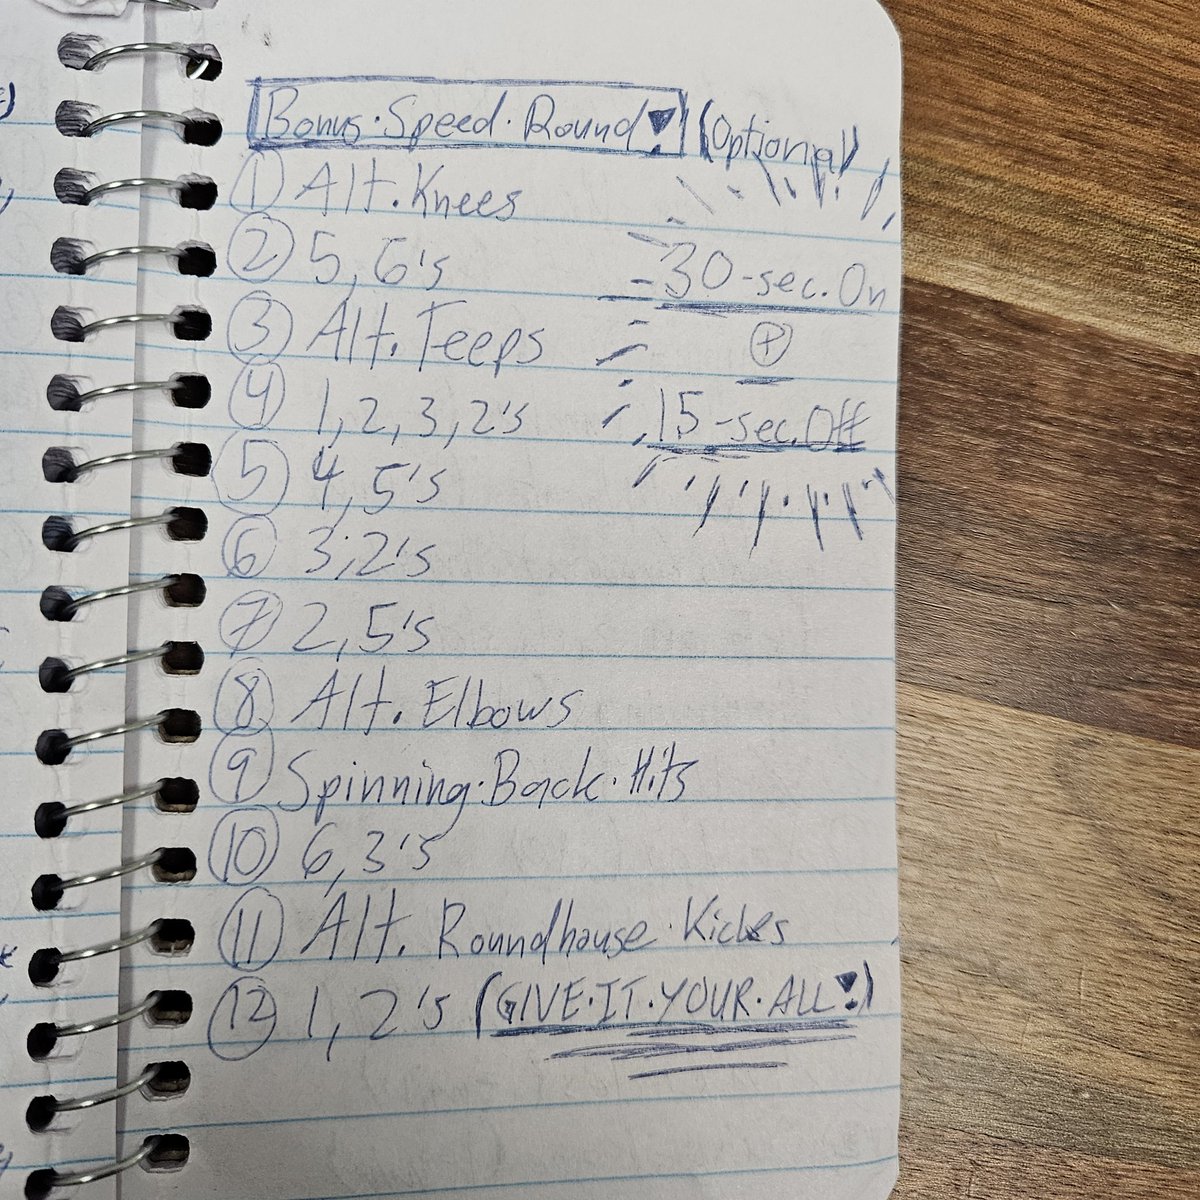 Bonus·Speed·Round! (Optional)
① Alt. Knees
② 5, 6's
30-sec. On
③ Alt. Teeps
+
④ 1, 2, 3, 2's
15-sec. Off
⑤ 4, 5's
⑥ 3, 2's
⑦ 2, 5's
⑧ Alt. Elbows
⑨ Spinning·Back·Hits
⑩ 6, 3's
⑪ Alt. Roundhouse·Kicks
⑫ 1, 2's (GIVE·IT·YOUR·ALL!)